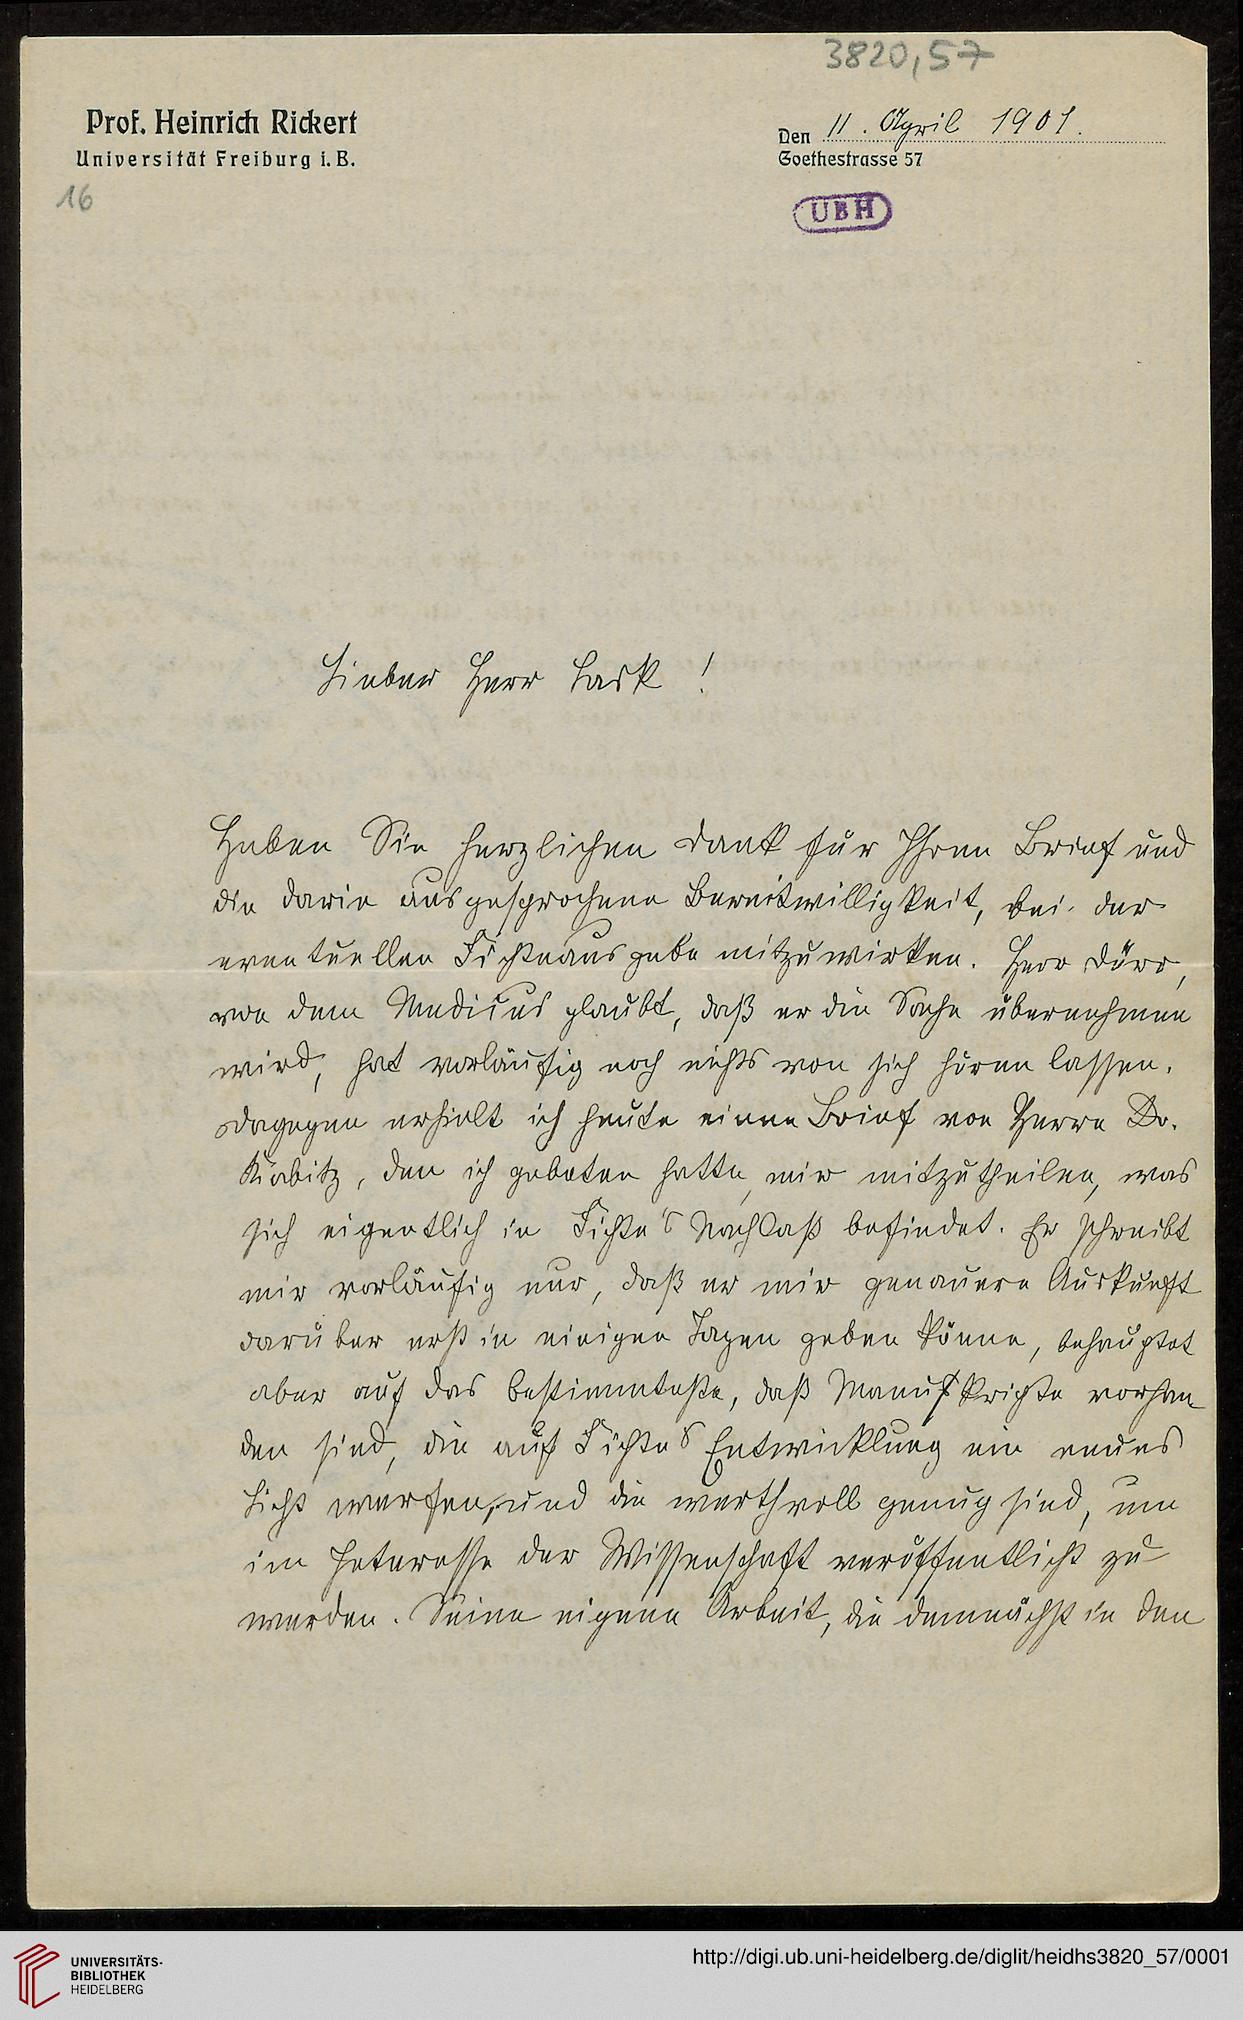 3820,57
Prof. Heinrich Rickert
Universität Freiburg i. B.
Den 11. April 1901.
Goethestrasse 57
16
UBH
Lieber Herr Lask !
Haben Sie herzlichen Dank für Ihren Brief und
die darin ausgesprochene Bereitwilligkeit, bei der
eventuellen Fichteausgabe mitzuwirken. Herr Dürr,
von dem Medicus glaubt, daß er die Sache übernehmen
wird, hat vorläufig noch nichts von sich hören lassen.
Dagegen erhielt ich heute einen Brief von Herrn Dr.
Kabitz, den ich gebeten hatte, mir mitzutheilen, was
sich eigentlich in Fichte's Nachlaß befindet. Er schreibt
mir vorläufig nur, daß er mir genauere Auskunft
darüber erst in einigen Tagen geben könne, behauptet
aber auf das bestimmteste, daß Manuskripte vorhan
den sind, die auf Fichtes Entwicklung ein neues
Licht werfen, und die werthvoll genug sind, um
im Interesse der Wissenschaft veröffentlicht zu
werden. Seine eigene Arbeit, die demnächst in den
UNIVERSITÄTS-
BIBLIOTHEK
HEIDELBERG
http://digi.ub.uni-heidelberg.de/diglit/heidhs3820_57/0001